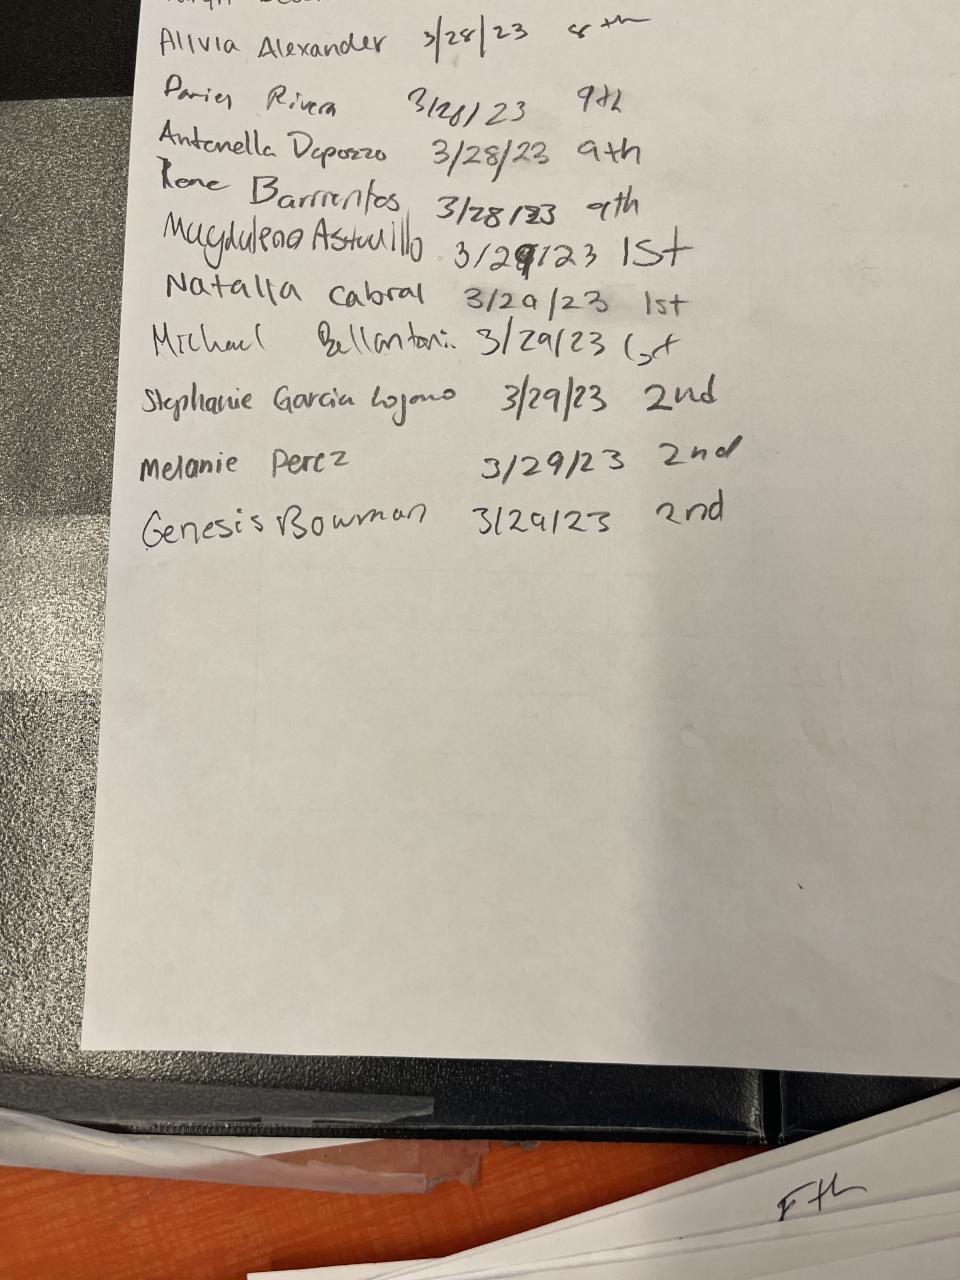 Alivia Alexander 3/28/23 8th
Rivera 3/28/23 9th
Antonella Depozzo 3/28/23 9th
Rene Barrientos 3/28/23 9th
Magdalena Astudillo 3/29/23 1st
Natalia Cabral 3/29/23 1st
Michael Bellantoni 3/29/23 1st
Stephanie Garcia Lozano 3/29/23 2nd
Melanie Perez 3/29/23 2nd
Genesis Bowman 3/29/23 2nd